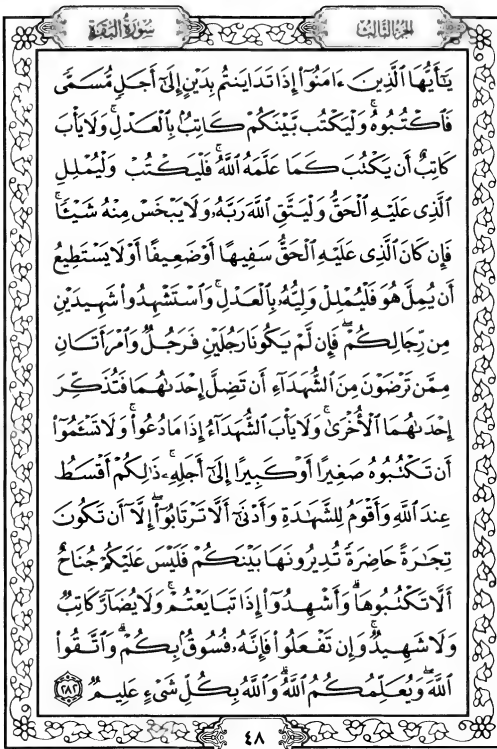 سُورَةُ البَقَرَةِ
الجُزءُ الثَّالِثُ
يَٰٓأَيُّهَا ٱلَّذِينَ ءَامَنُوٓا۟ إِذَا تَدَايَنتُم بِدَيْنٍ إِلَىٰٓ أَجَلٍ مُّسَمًّى
فَٱكْتُبُوهُ ۚ وَلْيَكْتُب بَّيْنَكُمْ كَاتِبٌۢ بِٱلْعَدْلِ ۚ وَلَا يَأْبَ
كَاتِبٌ أَن يَكْتُبَ كَمَا عَلَّمَهُ ٱللَّهُ ۚ فَلْيَكْتُبْ وَلْيُمْلِلِ
ٱلَّذِى عَلَيْهِ ٱلْحَقُّ وَلْيَتَّقِ ٱللَّهَ رَبَّهُۥ وَلَا يَبْخَسْ مِنْهُ شَيْـًٔا ۚ
فَإِن كَانَ ٱلَّذِى عَلَيْهِ ٱلْحَقُّ سَفِيهًا أَوْ ضَعِيفًا أَوْ لَا يَسْتَطِيعُ
أَن يُمِلَّ هُوَ فَلْيُمْلِلْ وَلِيُّهُۥ بِٱلْعَدْلِ ۚ وَٱسْتَشْهِدُوا۟ شَهِيدَيْنِ
مِن رِّجَالِكُمْ ۖ فَإِن لَّمْ يَكُونَا رَجُلَيْنِ فَرَجُلٌ وَٱمْرَأَتَانِ
مِمَّن تَرْضَوْنَ مِنَ ٱلشُّهَدَآءِ أَن تَضِلَّ إِحْدَىٰهُمَا فَتُذَكِّرَ
إِحْدَىٰهُمَا ٱلْأُخْرَىٰ ۚ وَلَا يَأْبَ ٱلشُّهَدَآءُ إِذَا مَا دُعُوا۟ ۚ وَلَا تَسْـَٔمُوٓا۟
أَن تَكْتُبُوهُ صَغِيرًا أَوْ كَبِيرًا إِلَىٰٓ أَجَلِهِۦ ۚ ذَٰلِكُمْ أَقْسَطُ
عِندَ ٱللَّهِ وَأَقْوَمُ لِلشَّهَٰدَةِ وَأَدْنَىٰٓ أَلَّا تَرْتَابُوٓا۟ ۖ إِلَّآ أَن تَكُونَ
تِجَٰرَةً حَاضِرَةً تُدِيرُونَهَا بَيْنَكُمْ فَلَيْسَ عَلَيْكُمْ جُنَاحٌ
أَلَّا تَكْتُبُوهَا ۗ وَأَشْهِدُوٓا۟ إِذَا تَبَايَعْتُمْ ۚ وَلَا يُضَآرَّ كَاتِبٌ
وَلَا شَهِيدٌ ۚ وَإِن تَفْعَلُوا۟ فَإِنَّهُۥ فُسُوقٌۢ بِكُمْ ۗ وَٱتَّقُوا۟
ٱللَّهَ ۖ وَيُعَلِّمُكُمُ ٱللَّهُ ۗ وَٱللَّهُ بِكُلِّ شَىْءٍ عَلِيمٌ ٢٨٢
٤٨